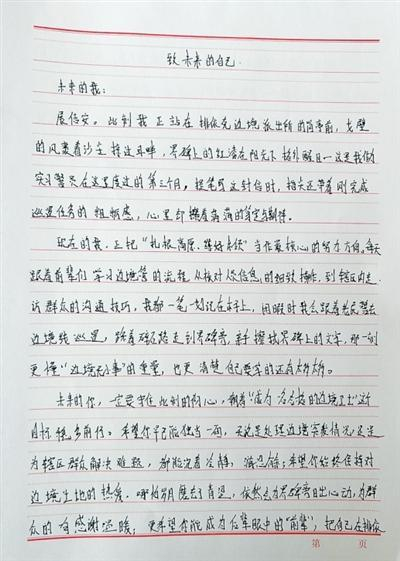 致未来的自己
未来的我：
展信安。此刻我正站在排依克边境派出所的岗亭前，戈壁
的风裹着沙尘擦过耳畔，界碑上的红漆在阳光下格外醒目—这是我作为
实习警员在这里度过的第三个月。提笔写这封信时，指尖还带着刚完成
巡逻任务的粗糙感，心里却揣着满满的笃定与期待。
现在的我，正把“扎根高原、”当作最核心的努力方向。每天
跟着前辈们学习边境管的流程，从核对信息的细致操作，到辖区内走
访群众的沟通技巧，我都一笔一划记在本子上，闲暇时我会跟着老民警去
边境线巡逻，踩着碎石路走到界碑旁，亲手擦拭界碑上的文字，那一刻
更懂“边境无小事”的重量，也更清楚自己要学的还有很多。
未来的你，一定要守住此刻的初心，朝着“成为合格的边境卫士”这个
目标稳步前行。希望你早已能独当一面，无论是处理边境突发情况，还是
为辖区群众解决难题，都能沉着冷静、；希望你始终保持对
边境土地的热爱，哪怕岁月磨去了青涩，依然会为界碑旁日出心动，为群
众的一句感谢温暖；更希望你能成为后辈眼中的“前辈”，把自己在排依
第 页